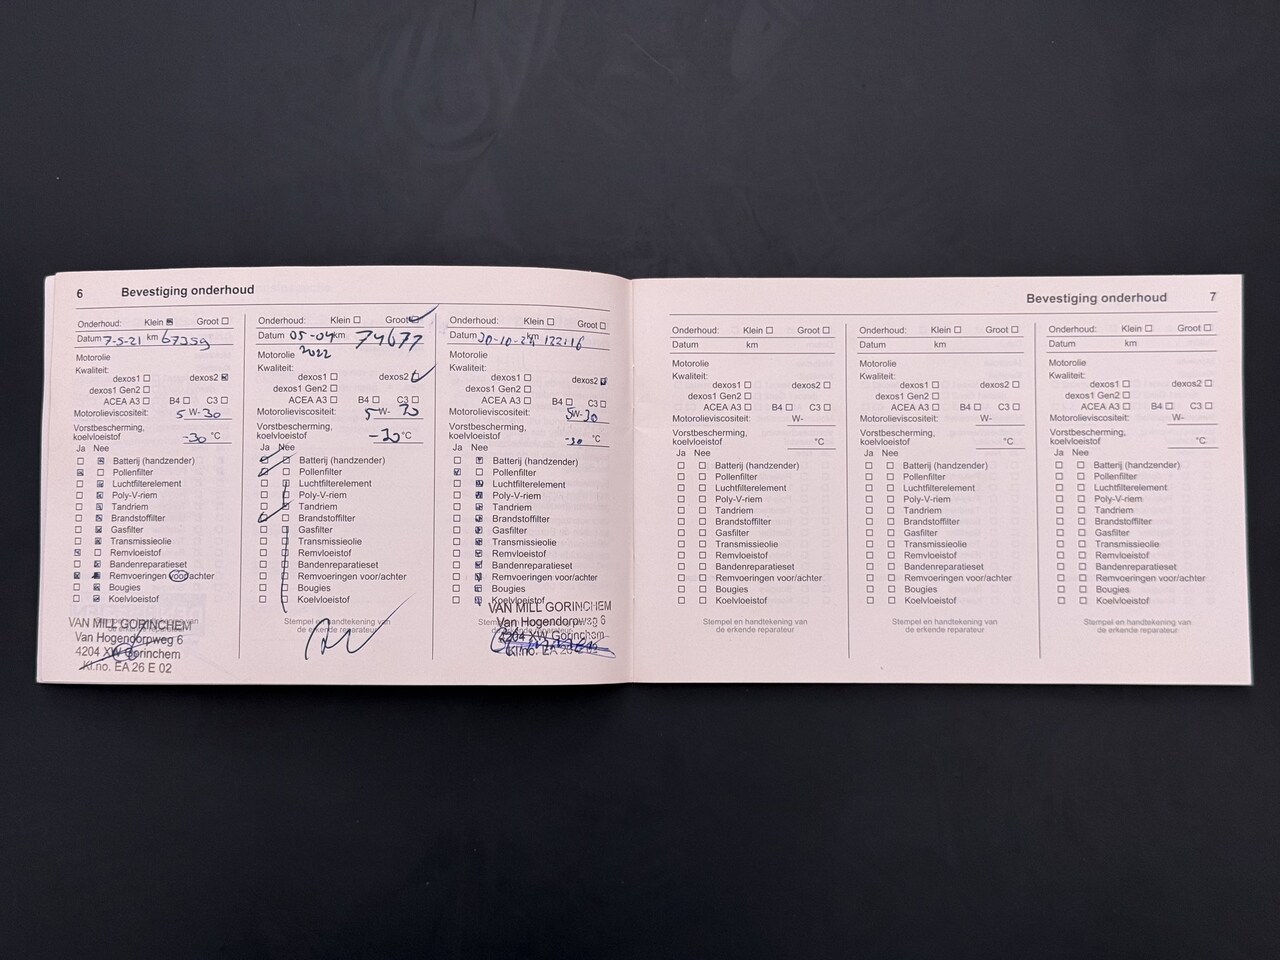 6 Bevestiging onderhoud
Onderhoud: Klein Groot
Datum 7-5-21 km 67359
Motorolie
Kwaliteit:
dexos1 dexos2
dexos1 Gen2
ACEA A3 B4 C3
Motorolieviscositeit: 5 W- 30
Vorstbescherming,
koelvloeistof -30 °C
Ja Nee
Batterij (handzender)
Pollenfilter
Luchtfilterelement
Poly-V-riem
Tandriem
Brandstoffilter
Gasfilter
Transmissieolie
Remvloeistof
Bandenreparatieset
Remvoeringen voor/achter
Bougies
Koelvloeistof
VAN MILL GORINCHEM
Van Hogendorpweg 6
4204 XW Gorinchem
Kl.no. EA 26 E 02
Onderhoud: Klein Groot
Datum 05-04 km 74677
2022
Motorolie
Kwaliteit:
dexos1 dexos2
dexos1 Gen2
ACEA A3 B4 C3
Motorolieviscositeit: 5 W- 30
Vorstbescherming,
koelvloeistof -30 °C
Ja Nee
Batterij (handzender)
Pollenfilter
Luchtfilterelement
Poly-V-riem
Tandriem
Brandstoffilter
Gasfilter
Transmissieolie
Remvloeistof
Bandenreparatieset
Remvoeringen voor/achter
Bougies
Koelvloeistof
Stempel en handtekening van
de erkende reparateur
Onderhoud: Klein Groot
Datum km
Motorolie
Kwaliteit:
dexos1 dexos2
dexos1 Gen2
ACEA A3 B4 C3
Motorolieviscositeit: 5W-30
Vorstbescherming,
koelvloeistof -30 °C
Ja Nee
Batterij (handzender)
Pollenfilter
Luchtfilterelement
Poly-V-riem
Tandriem
Brandstoffilter
Gasfilter
Transmissieolie
Remvloeistof
Bandenreparatieset
Remvoeringen voor/achter
Bougies
Koelvloeistof
VAN MILL GORINCHEM
Van Hogendorpweg 6
4204 XW Gorinchem
Kl.no. EA 26 E 02
Bevestiging onderhoud 7
Onderhoud: Klein Groot
Datum km
Motorolie
Kwaliteit:
dexos1 dexos2
dexos1 Gen2
ACEA A3 B4 C3
Motorolieviscositeit: W-
Vorstbescherming,
koelvloeistof °C
Ja Nee
Batterij (handzender)
Pollenfilter
Luchtfilterelement
Poly-V-riem
Tandriem
Brandstoffilter
Gasfilter
Transmissieolie
Remvloeistof
Bandenreparatieset
Remvoeringen voor/achter
Bougies
Koelvloeistof
Stempel en handtekening van
de erkende reparateur
Onderhoud: Klein Groot
Datum km
Motorolie
Kwaliteit:
dexos1 dexos2
dexos1 Gen2
ACEA A3 B4 C3
Motorolieviscositeit: W-
Vorstbescherming,
koelvloeistof °C
Ja Nee
Batterij (handzender)
Pollenfilter
Luchtfilterelement
Poly-V-riem
Tandriem
Brandstoffilter
Gasfilter
Transmissieolie
Remvloeistof
Bandenreparatieset
Remvoeringen voor/achter
Bougies
Koelvloeistof
Stempel en handtekening van
de erkende reparateur
Onderhoud: Klein Groot
Datum km
Motorolie
Kwaliteit:
dexos1 dexos2
dexos1 Gen2
ACEA A3 B4 C3
Motorolieviscositeit: W-
Vorstbescherming,
koelvloeistof °C
Ja Nee
Batterij (handzender)
Pollenfilter
Luchtfilterelement
Poly-V-riem
Tandriem
Brandstoffilter
Gasfilter
Transmissieolie
Remvloeistof
Bandenreparatieset
Remvoeringen voor/achter
Bougies
Koelvloeistof
Stempel en handtekening van
de erkende reparateur